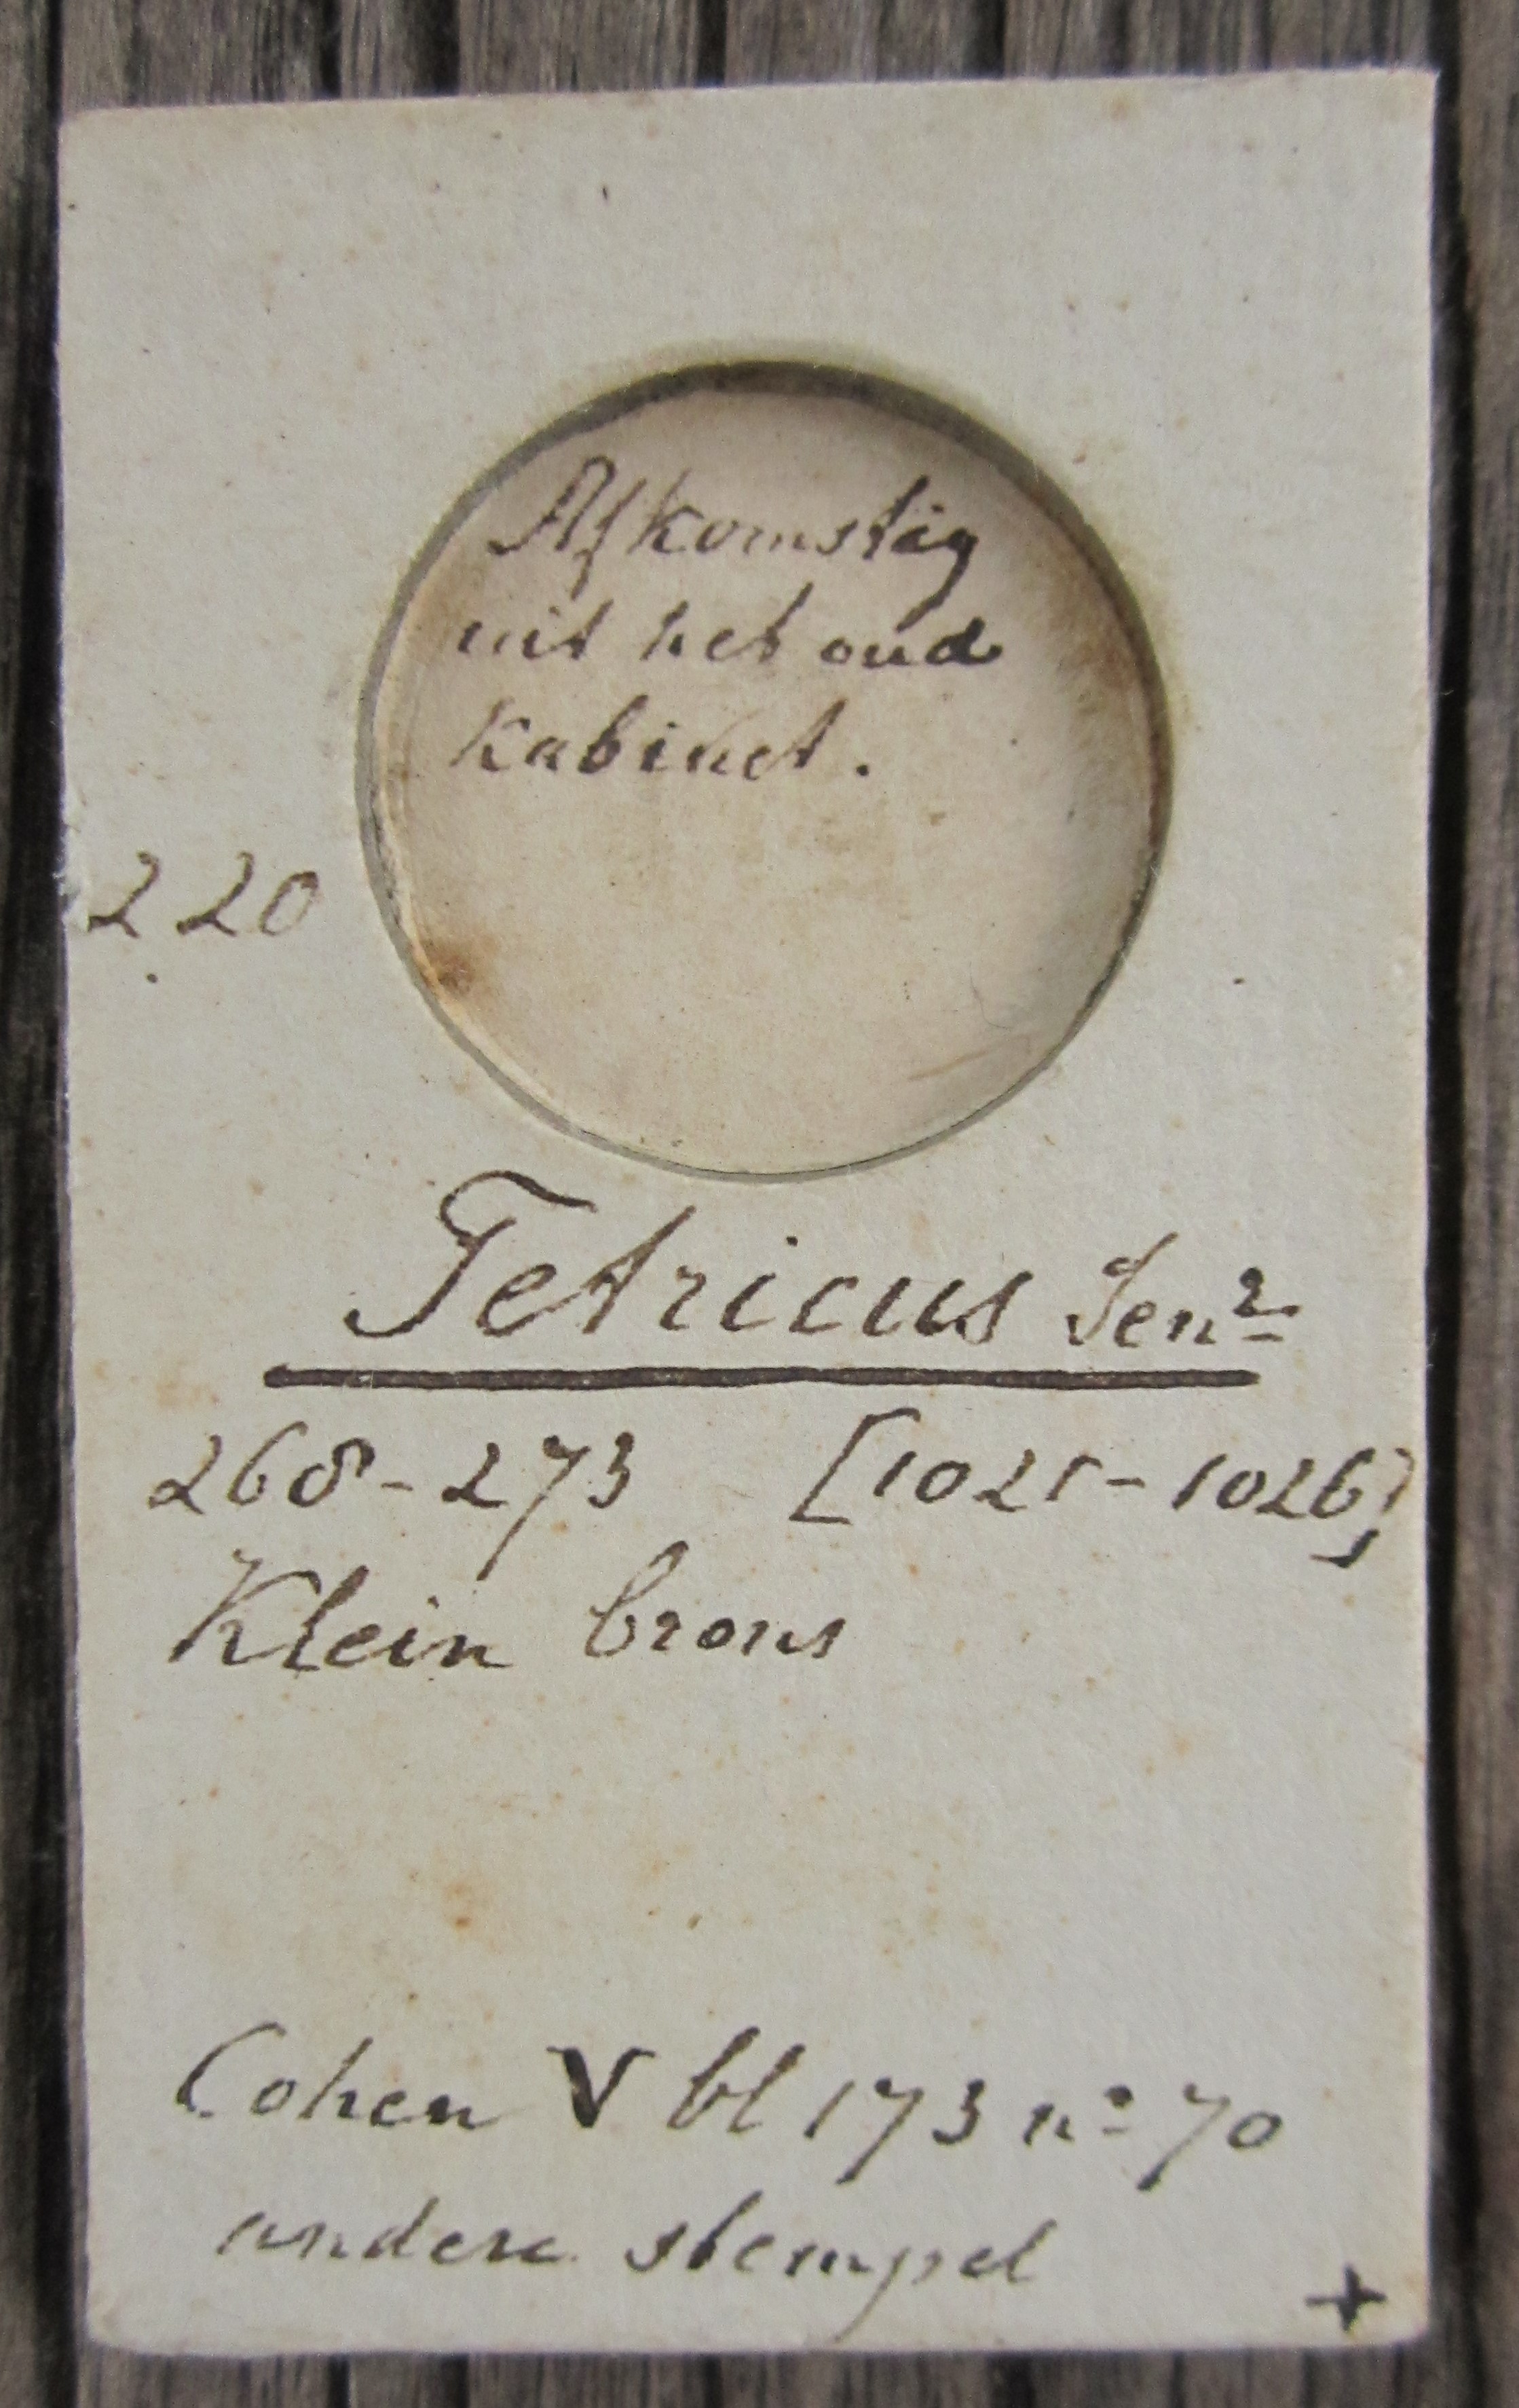 Afkomstig
uit het oud
Kabinet.
220
Tetricus Senr
268-273 [1021-1026]
Klein brons
Cohen V bl 173 no 70
andere stempel
+